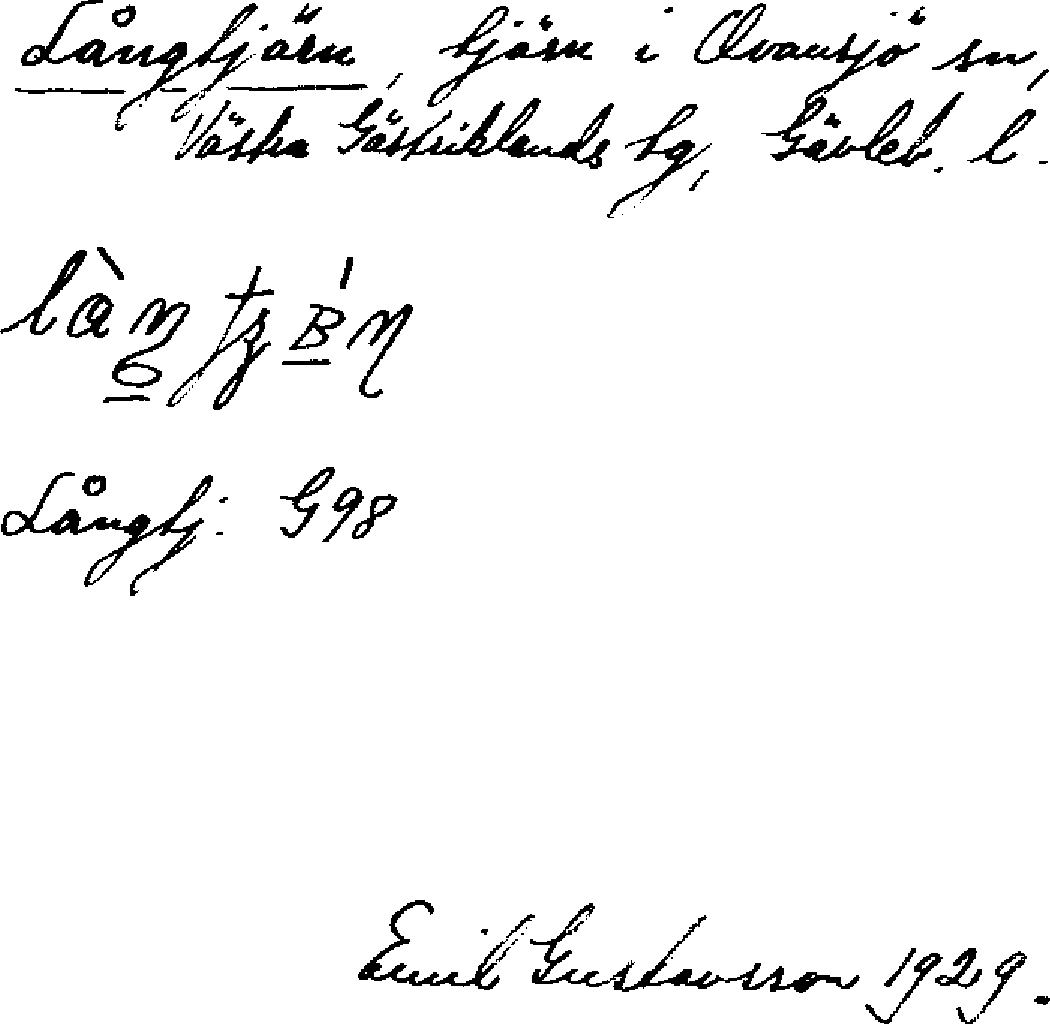 Långtjärn, tjärn i Ovansjö sn,
Västra Gästriklands tg, Gävleb. l.
Långtj. G98
Emil Gustavsson 1929.